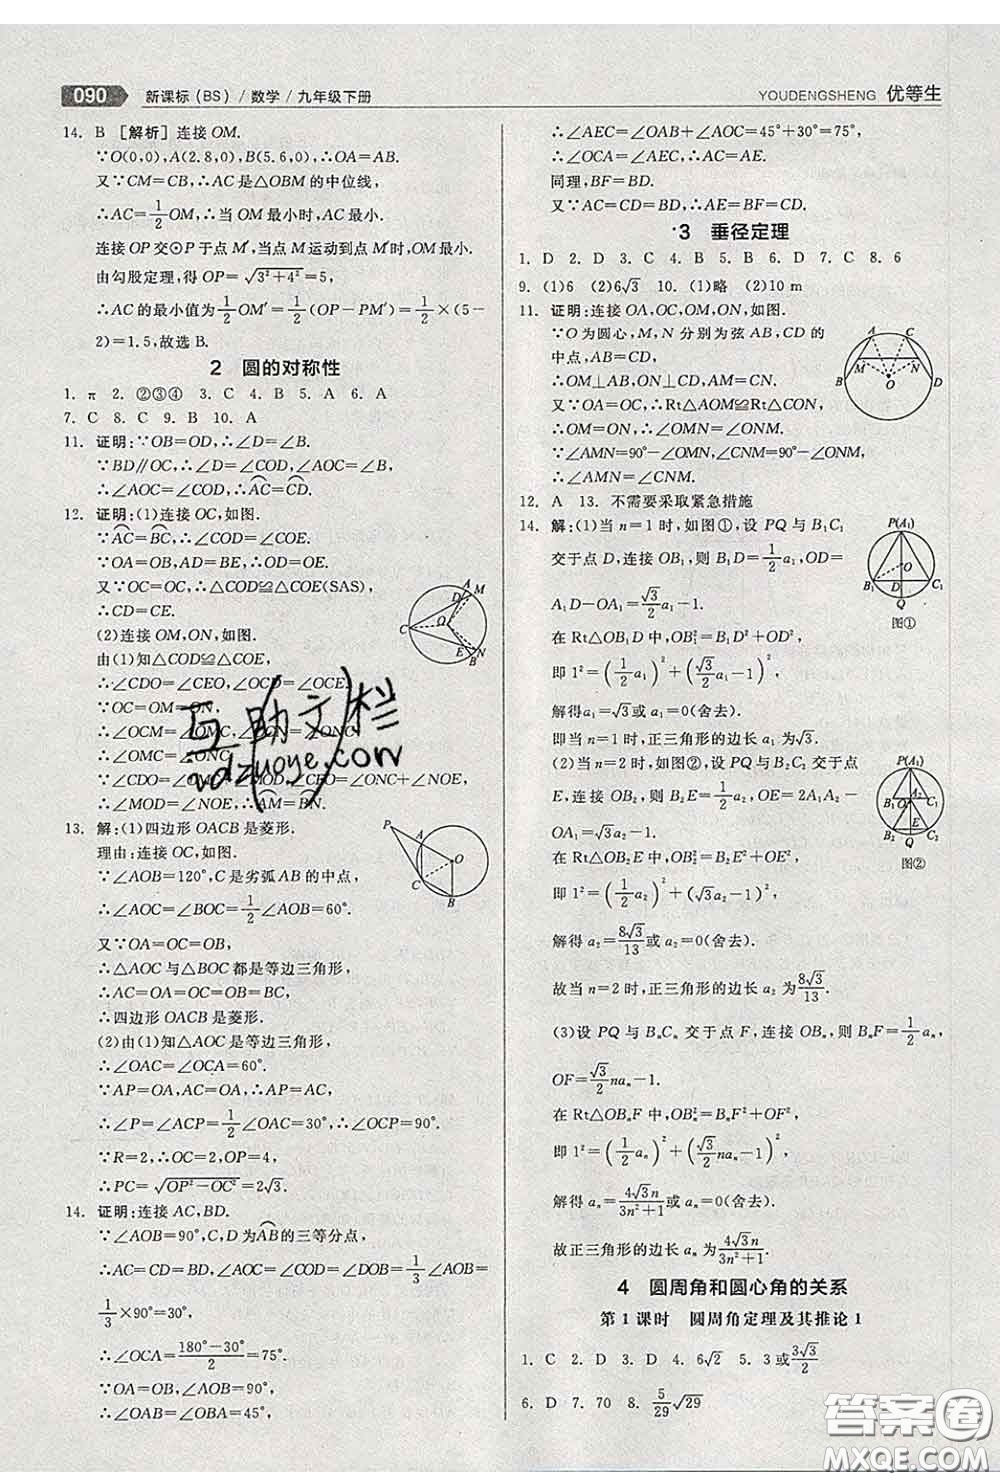 090 新课标(BS)/数学/九年级下册
YOUDENGSHENG 优等生
14. B [解析]连接OM.
∵O(0,0),A(2.8,0),B(5.6,0),∴OA=AB.
又∵CM=CB,∴AC是△OBM的中位线,
∴AC=1/2OM,∴当OM最小时,AC最小.
连接OP交⊙P于点M′,当点M运动到点M′时,OM最小.
由勾股定理,得OP=√(3²+4²)=5,
∴AC的最小值为1/2OM′=1/2(OP-PM′)=1/2×(5-
2)=1.5,故选B.
2 圆的对称性
1. π 2. ②③④ 3. C 4. B 5. A 6. A
7. C 8. C 9. B 10. A
11. 证明:∵OB=OD,∴∠D=∠B.
∵BD∥OC,∴∠D=∠COD,∠AOC=∠B,
∴∠AOC=∠COD,∴AC=CD.
12. 证明:(1)连接OC,如图.
∵AC=BC,∴∠COD=∠COE.
∵OA=OB,AD=BE,∴OD=OE.
又∵OC=OC,∴△COD≌△COE(SAS),
∴CD=CE.
(2)连接OM,ON,如图.
由(1)知△COD≌△COE,
∴∠CDO=∠CEO,∠OCD=∠OCE.
∵OC=OM=ON,
∴∠OCM=∠OMC,∠OCN=∠ONC,
∴∠OMC=∠ONC.
∵∠CDO=∠OMC+∠MOD,∠CEO=∠ONC+∠EON,
∴∠MOD=∠NOE,∴AM=BN.
13. 解:(1)四边形OACB是菱形.
理由:连接OC,如图.
∵∠AOB=120°,C是劣弧AB的中点,
∴∠AOC=∠BOC=1/2∠AOB=60°.
又∵OA=OC=OB,
∴△AOC与△BOC都是等边三角形,
∴OA=AC=OC=OB=BC,
∴四边形OACB是菱形.
(2)由(1)知△AOC是等边三角形,
∴∠OAC=∠OCA=60°.
∵AP=OA,OA=AC,∴AP=AC,
∴∠P=∠ACP=1/2∠OAC=30°,∴∠OCP=90°.
∵R=2,∴OC=2,OP=4,
∴PC=√(OP²-OC²)=2√3.
14. 证明:连接AC,BD.
∵∠AOB=90°,C,D为AB的三等分点,
∴AC=CD=BD,∠AOC=∠COD=∠BOD=1/3∠AOB=
1/3×90°=30°,
∴∠OCA=(180°-30°)/2=75°.
∵OA=OB,∠AOB=90°,
∴∠OAB=∠OBA=45°,
∴∠AEC=∠OAB+∠AOC=45°+30°=75°,
∴∠OCA=∠AEC,∴AC=AE.
同理,BF=BD.
又∵AC=CD=BD,∴AE=BF=CD.
*3 垂径定理
1. D 2. D 3. C 4. B 5. B 6. D 7. C 8. 6
9. (1)6 (2)6√3 10. (1)略 (2)10 m
11. 证明:连接OA,OC,OM,ON,如图.
∵O为圆心,M,N分别为弦AB,CD的
中点,AB=CD,
∴OM⊥AB,ON⊥CD,AM=CN.
又∵OA=OC,∴Rt△AOM≌Rt△CON,
∴OM=ON,∴∠OMN=∠ONM.
∵∠AMN=90°-∠OMN,∠CNM=90°-∠ONM,
∴∠AMN=∠CNM.
12. A 13. 不需要采取紧急措施
14. 解:(1)当n=1时,如图①,设PQ与B₁C₁
交于点D,连接OB₁,则B₁D=1/2a₁,OD=
A₁D-OA₁=√3/2a₁-1.
在Rt△OB₁D中,OB₁²=B₁D²+OD²,
即1²=(1/2a₁)²+(√3/2a₁-1)²,
解得a₁=√3或a₁=0(舍去).
即当n=1时,正三角形的边长a₁为√3.
(2)当n=2时,如图②,设PQ与B₂C₂交于点
E,连接OB₂,则B₂E=1/2a₂,OE=2A₁A₂-
OA₁=√3a₂-1.
在Rt△OB₂E中,OB₂²=B₂E²+OE²,
即1²=(1/2a₂)²+(√3a₂-1)²,
解得a₂=8√3/13或a₂=0(舍去).
故当n=2时,正三角形的边长a₂为8√3/13.
(3)设PQ与BₙCₙ交于点F,连接OBₙ,则BₙF=1/2aₙ,
OF=√3/2naₙ-1.
在Rt△OBₙF中,OBₙ²=BₙF²+OF²,
即1²=(1/2aₙ)²+(√3/2naₙ-1)²,
解得aₙ=4√3n/(3n²+1)或aₙ=0(舍去).
故正三角形的边长aₙ为4√3n/(3n²+1).
4 圆周角和圆心角的关系
第1课时 圆周角定理及其推论1
1. C 2. D 3. D 4. 6√2 5. 3或3√3/2
6. D 7. 70 8. 5/29√29
A M D O C E N B
P A O C B
A C M N B O D
P(A₁) O B₁ D C₁ Q
图①
P(A₁) A₂ B₁ C₁ E B₂ Q C₂
图②
互助文栏
wdzuoye.com
答案圈
MXQE.COM